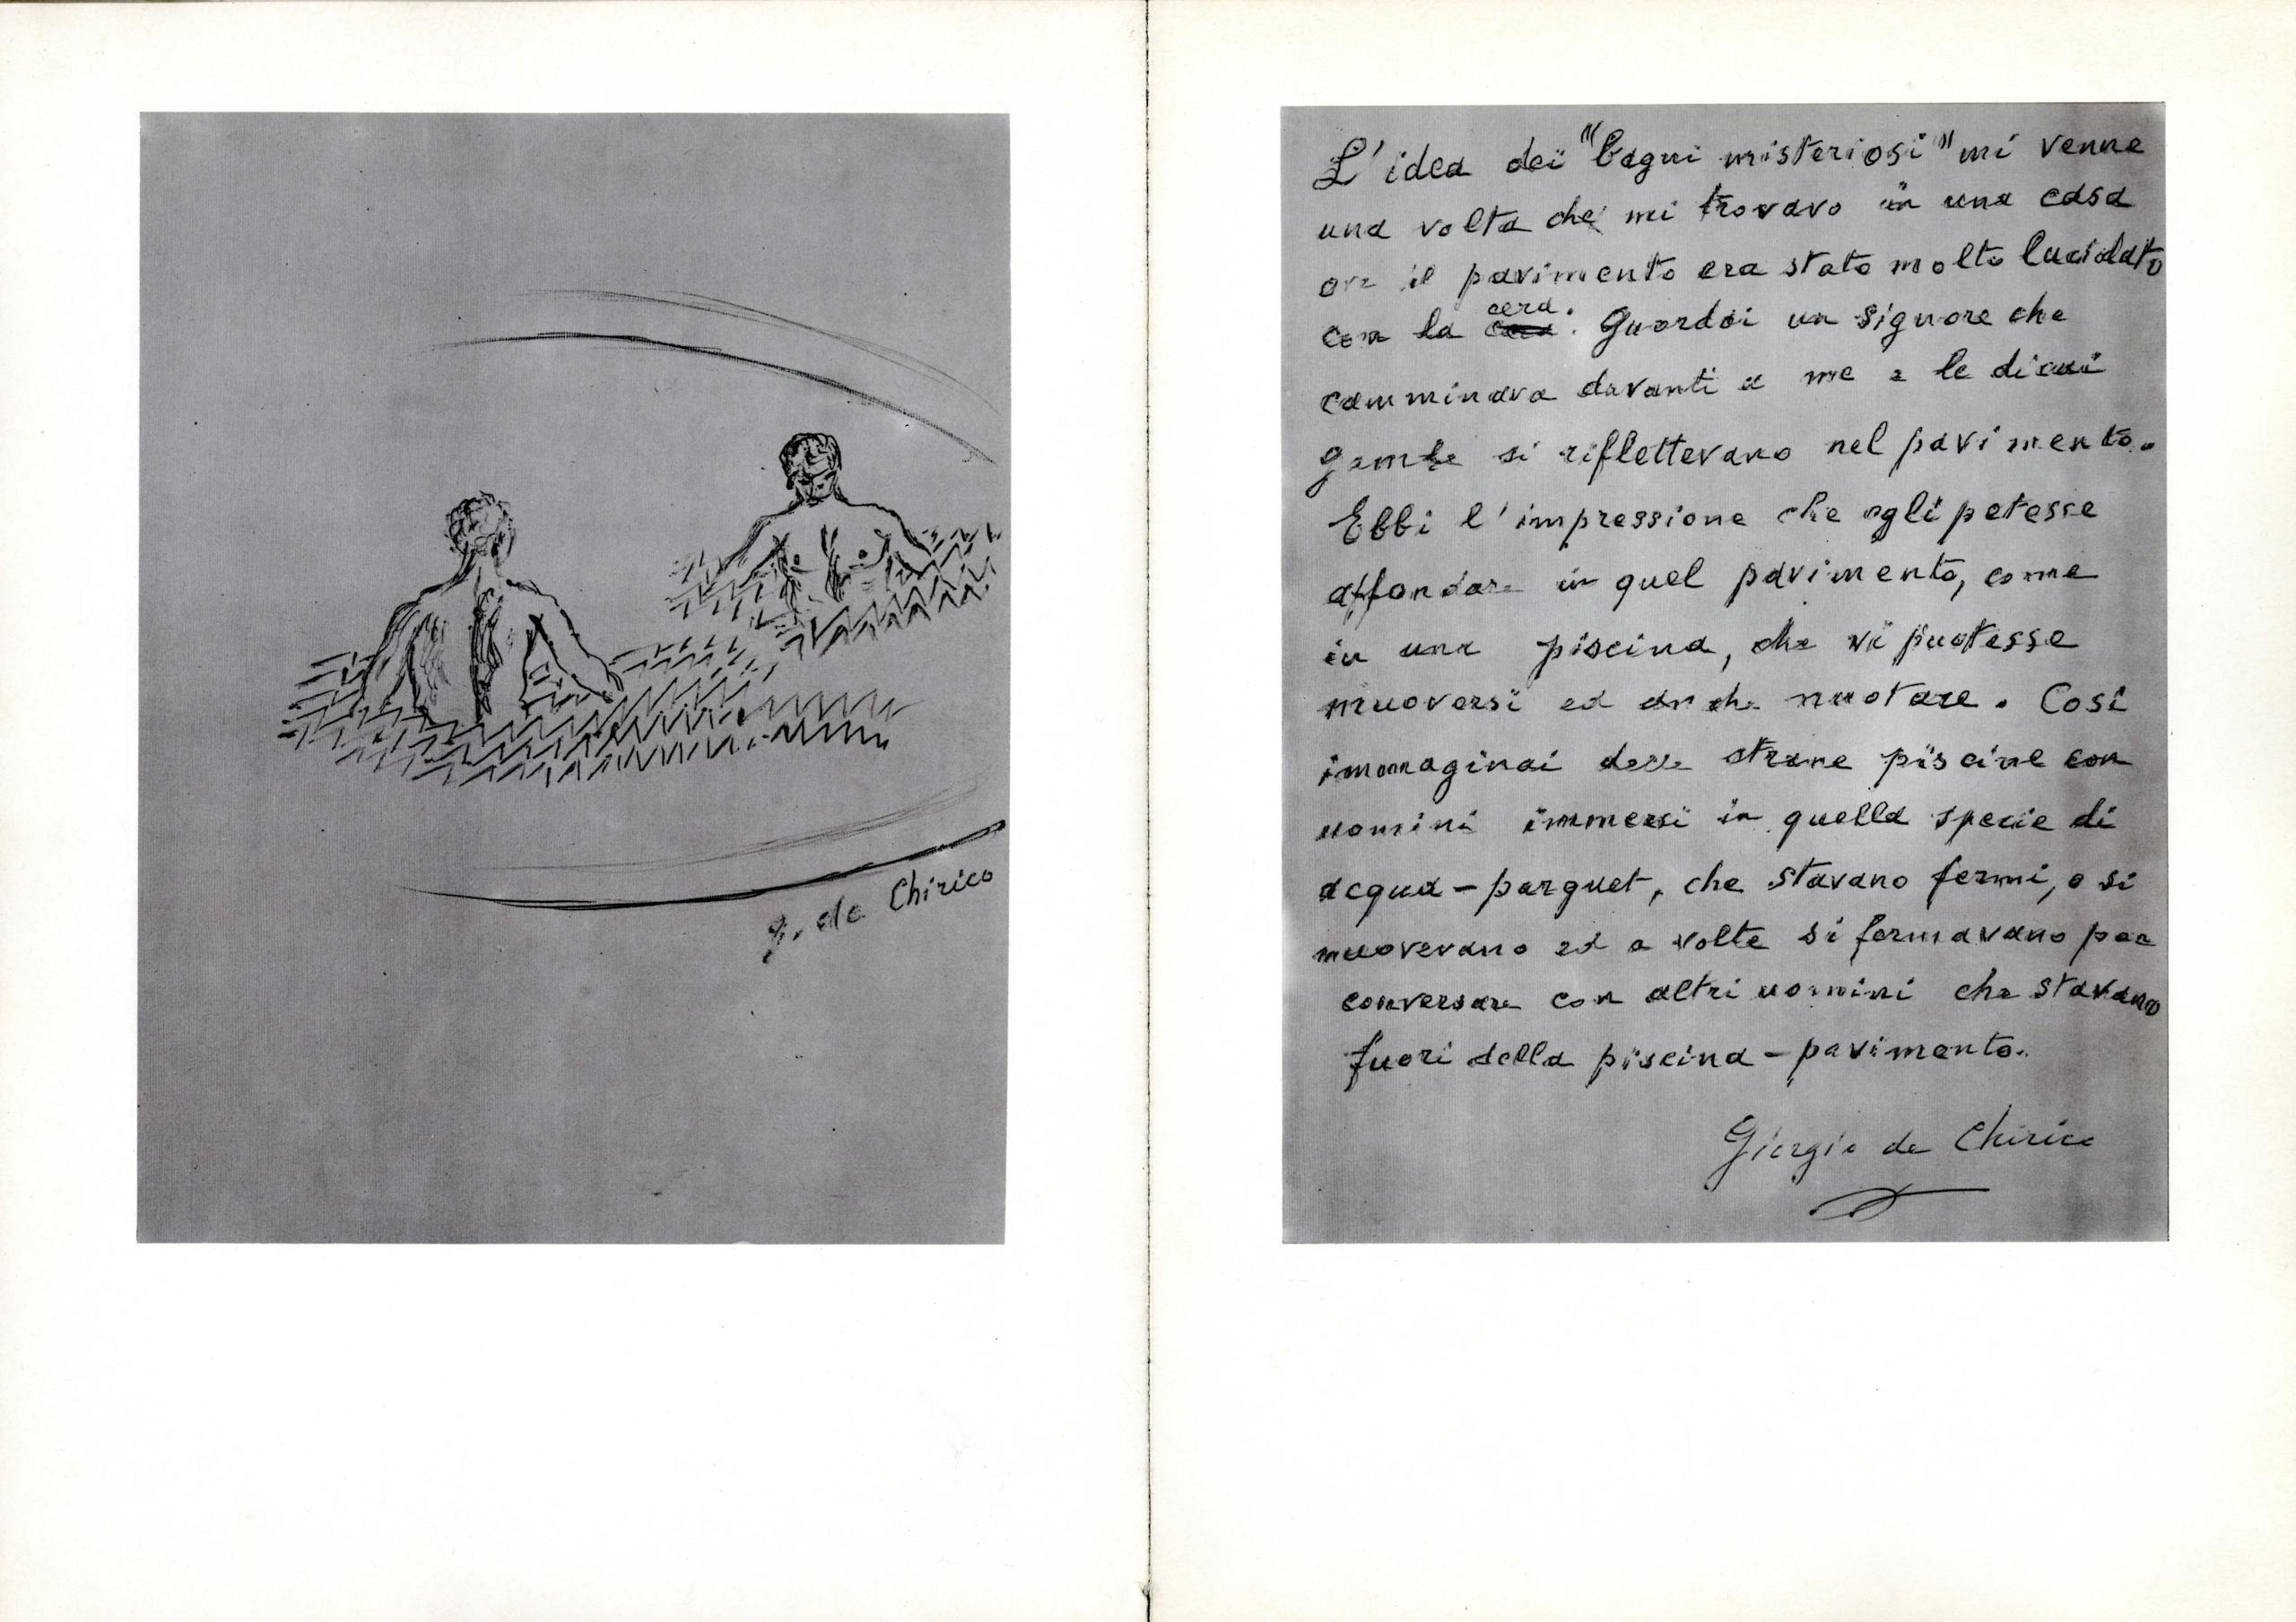 g. de Chirico
L'idea dei "bagni misteriosi" mi venne
una volta che mi trovavo in una casa
ove il pavimento era stato molto lucidato
con la cera. Guardai un signore che
camminava davanti a me e le di cui
gambe si riflettevano nel pavimento.
Ebbi l'impressione che egli potesse
affondare in quel pavimento, come
in una piscina, che vi potesse
muoversi ed anche nuotare. Così
immaginai delle strane piscine con
uomini immersi in quella specie di
acqua-parquet, che stavano fermi, o si
muovevano ed a volte si fermavano per
conversare con altri uomini che stavano
fuori della piscina-pavimento.
Giorgio de Chirico